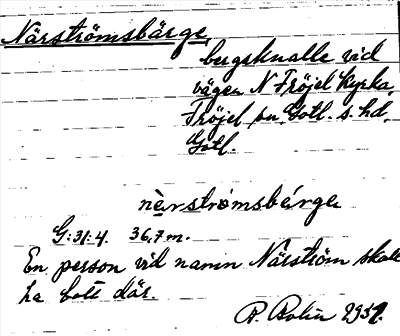 Närströmsbärge
bergsknalle vid
vägen N Fröjel kyrka,
Fröjel sn, Gotl. s. hd,
Gotl.
nèrstrømsbérge
G:31:4. 36,7 m.
En person vid namn Närström skall
ha bott där.
1959.